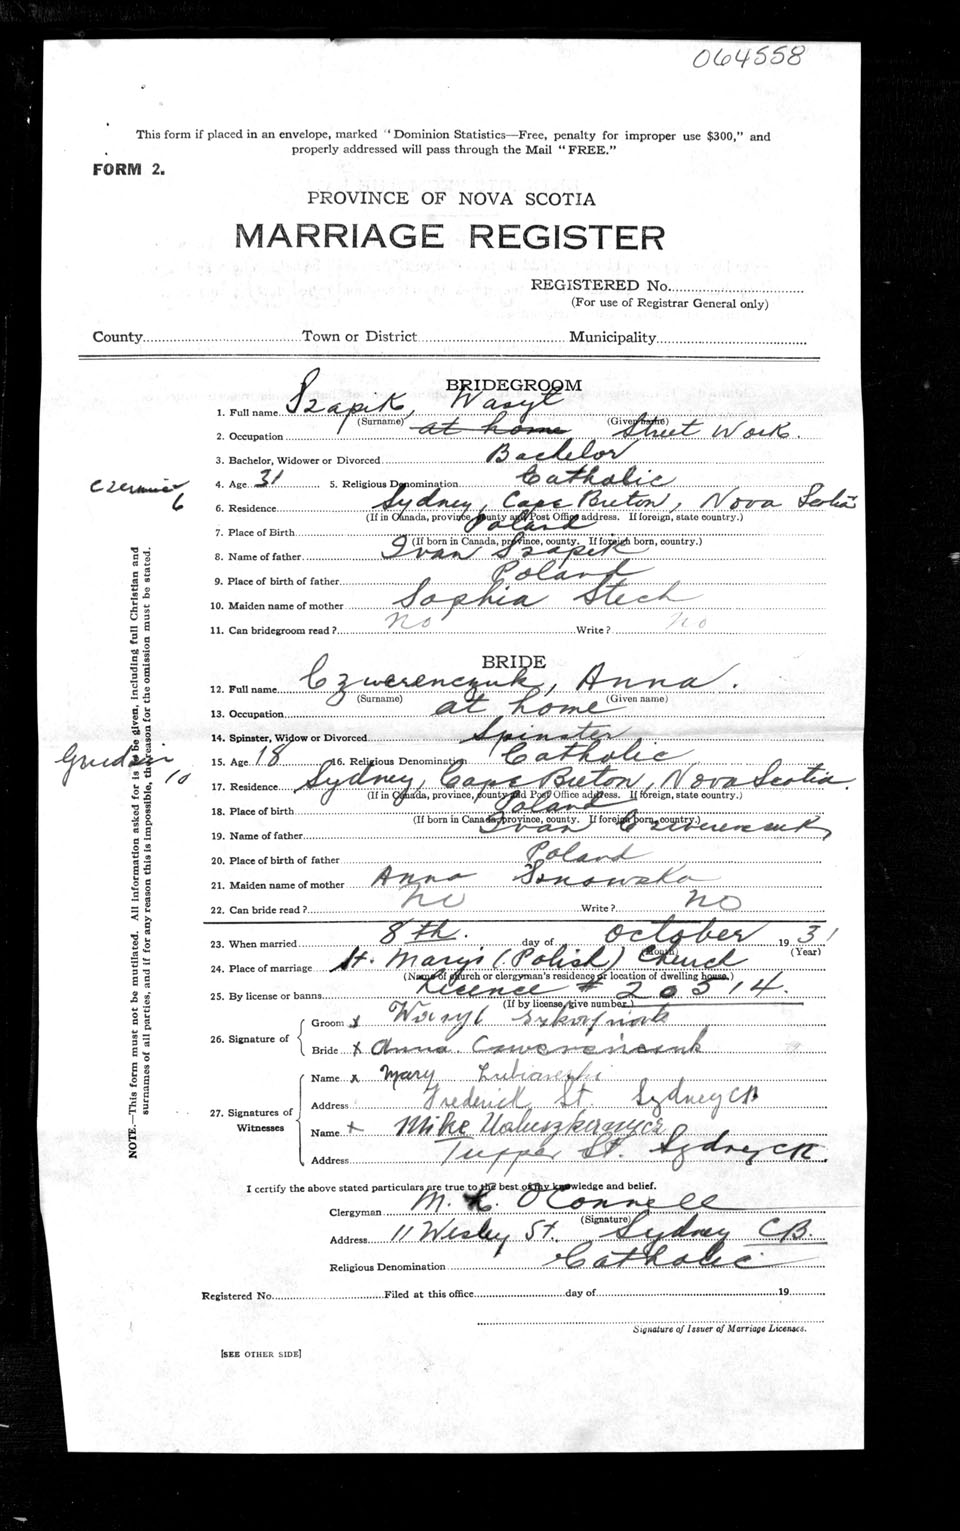 064558
This form if placed in an envelope, marked "Dominion Statistics—Free, penalty for improper use $300," and
properly addressed will pass through the Mail "FREE."
FORM 2.
PROVINCE OF NOVA SCOTIA
MARRIAGE REGISTER
REGISTERED No.
(For use of Registrar General only)
County Town or District Municipality
BRIDEGROOM
1. Full name Szapik, Wasyl
(Surname) (Given name)
2. Occupation at home Street Work.
3. Bachelor, Widower or Divorced Bachelor
4. Age 31 5. Religious Denomination Catholic
6
6. Residence Sydney, Cape Breton, Nova Scotia
(If in Canada, province, county and Post Office address. If foreign, state country.)
7. Place of Birth Poland
(If born in Canada, province, county. If foreign born, country.)
8. Name of father Ivan Szapik
9. Place of birth of father Poland
10. Maiden name of mother Sophia Stech
11. Can bridegroom read? No Write? No
BRIDE
12. Full name Czwerenczuk, Anna.
(Surname) (Given name)
13. Occupation at home
14. Spinster, Widow or Divorced Spinster
15. Age 18 16. Religious Denomination Catholic
10
17. Residence Sydney, Cape Breton, Nova Scotia.
(If in Canada, province, county and Post Office address. If foreign, state country.)
18. Place of birth Poland
(If born in Canada, province, county. If foreign born, country.)
19. Name of father Ivan Czwerenczuk
20. Place of birth of father Poland
21. Maiden name of mother Anna
22. Can bride read? No Write? No
23. When married 8th. day of October 1931
(Month) (Year)
24. Place of marriage St. Mary's (Polish) Church
(Name of church or clergyman's residence or location of dwelling house.)
25. By license or banns Licence # 20514.
(If by license, give number.)
26. Signature of
Groom x Wasyl
Bride x Anna
27. Signatures of Witnesses
Name x Mary
Address Frederick St. Sydney CB
Name x Mike
Address Tupper St. Sydney CB.
I certify the above stated particulars are true to the best of my knowledge and belief.
Clergyman M. O'Connell
(Signature)
Address 11 Wesley St. Sydney CB.
Religious Denomination Catholic.
Registered No. Filed at this office day of 19
Signature of Issuer of Marriage Licenses.
[SEE OTHER SIDE]
NOTE.—This form must not be mutilated. All information asked for is to be given, including full Christian and
surnames of all parties, and if for any reason this is impossible, the reason for the omission must be stated.